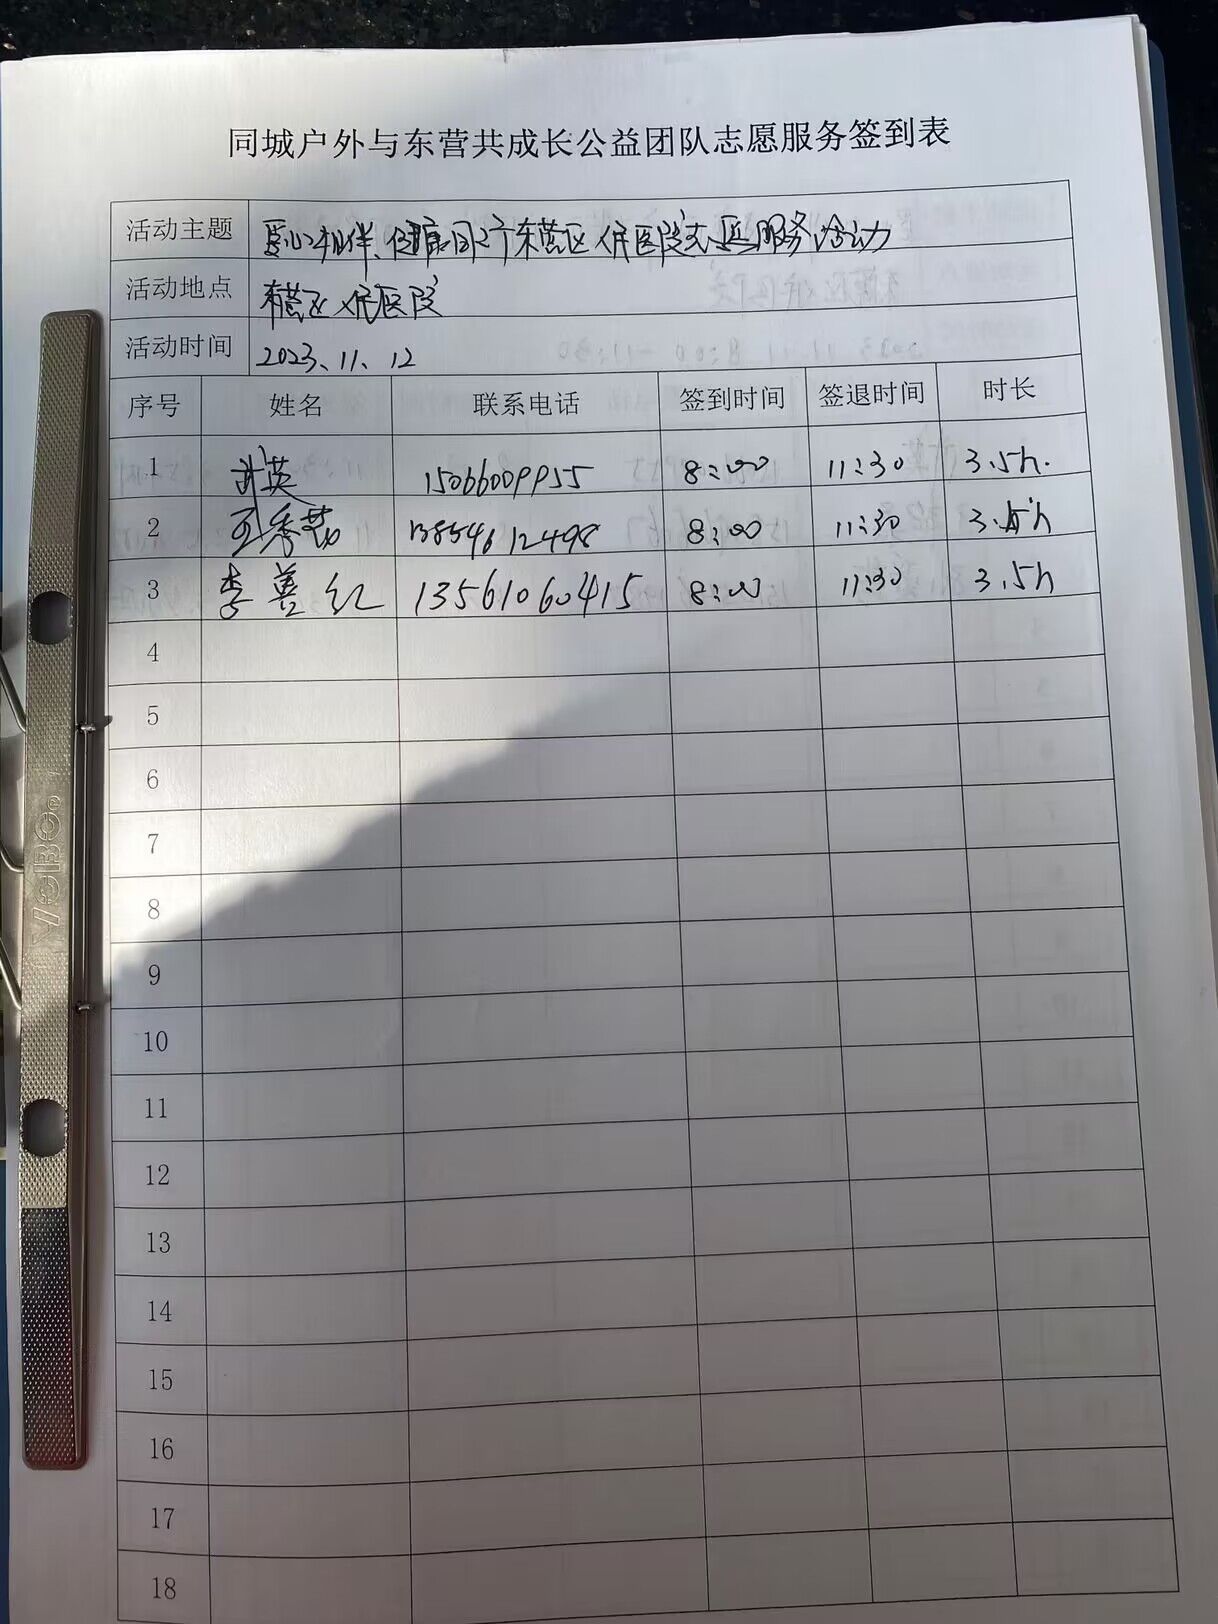 同城户外与东营共成长公益团队志愿服务签到表
活动主题 爱心相伴、健康同行东营区人民医院志愿服务活动
活动地点 东营区人民医院
活动时间 2023、11、12
序号 姓名 联系电话 签到时间 签退时间 时长
1 英 15066009955 8:00 11:30 3.5h.
2 王秀勤 13854612498 8:00 11:30 3.5h
3 李善红 13561060415 8:00 11:30 3.5h
4
5
6
7
8
9
10
11
12
13
14
15
16
17
18
YOBO